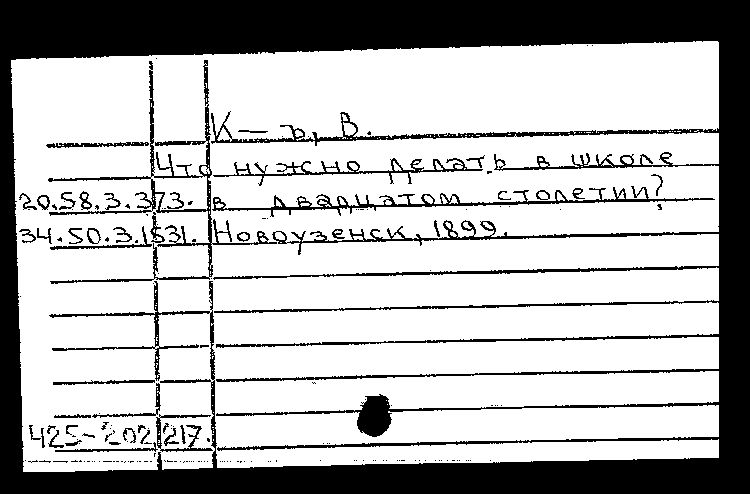 К—ъ, В.
Что нужно делать в школе
20.58.3.373. в двадцатом столетии?
34.50.3.1531. Новоузенск, 1899.
425-202217.